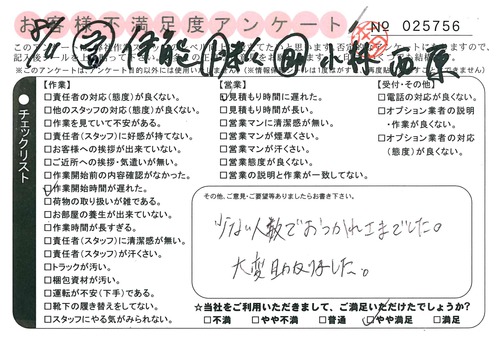 お客様不満足度アンケート
№ 025756
チェックリスト
【作業】
□責任者の対応(態度)が良くない。
□他のスタッフの対応(態度)が良くない。
□作業を見ていて不安がある。
□責任者(スタッフ)に好感が持てない。
□お客様への挨拶が出来ていない。
□ご近所への挨拶・気遣いが無い。
□作業開始前の内容確認がなかった。
□作業開始時間が遅れた。
□荷物の取り扱いが雑である。
□お部屋の養生が出来ていない。
□作業時間が長すぎる。
□責任者(スタッフ)に清潔感が無い。
□責任者(スタッフ)が汗くさい。
□トラックが汚い。
□梱包資材が汚い。
□運転が不安(下手)である。
□靴下の履き替えをしてない。
□スタッフにやる気がみられない。
【営業】
□見積もり時間に遅れた。
□見積もり時間が長い。
□営業マンに清潔感が無い。
□営業マンが煙草くさい。
□営業マンが汗くさい。
□営業態度が良くない。
□営業の説明と作業が一致してない。
【受付・その他】
□電話の対応が良くない。
□オプション業者の説明
・作業が良くない。
□オプション業者の対応
(態度)が良くない。
その他、ご意見・ご要望等ありましたらお書き下さい。
少ない人数でおつかれさまでした。
大変助かりました。
☆当社をご利用いただきまして、ご満足いただけたでしょうか?
□不満 □やや不満 □普通 □やや満足 □満足